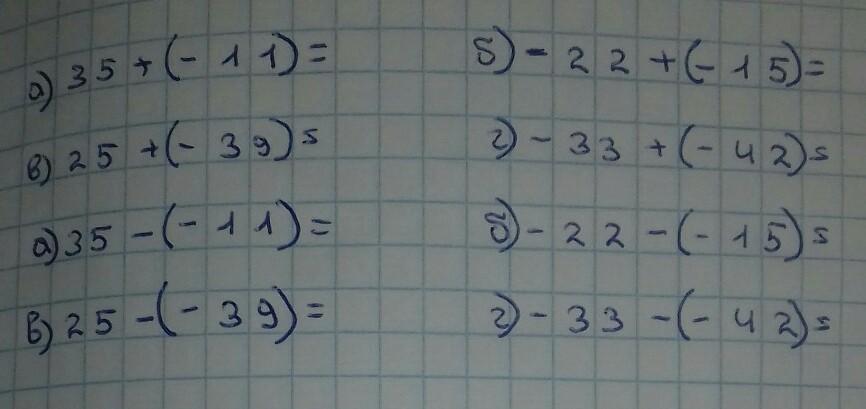 а) 35 + (- 11) = б) - 22 + (- 15) =
в) 25 + (- 39) = г) - 33 + (- 42) =
а) 35 - (- 11) = б) - 22 - (- 15) =
в) 25 - (- 39) = г) - 33 - (- 42) =